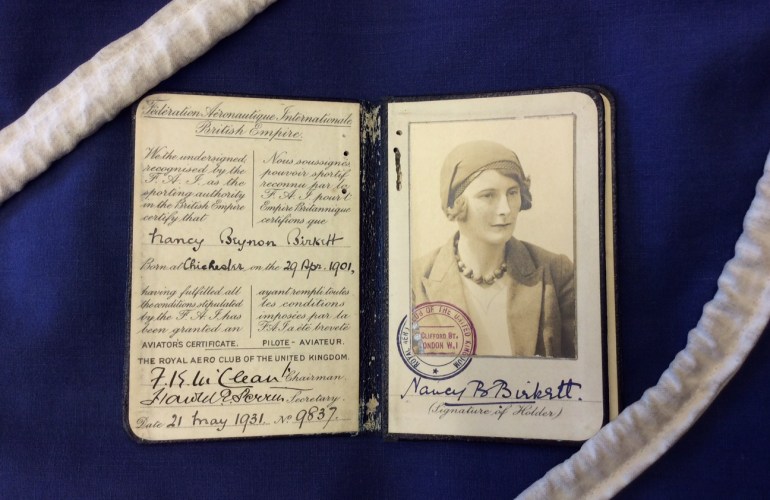 Fédération Aéronautique Internationale
British Empire.
We the undersigned
recognised by the
F. A. I. as the
sporting authority
in the British Empire
certify that
Nous soussignés
pouvoir sportif
reconnu par la
F A I pour l'
Empire Britannique
certifions que
Nancy Beynon Birkett
Born at Chichester on the 29 Apr. 1901.
having fulfilled all
the conditions stipulated
by the F. A. I. has
been granted an
AVIATOR'S CERTIFICATE.
ayant rempli toutes
les conditions
imposées par la
F A I a été breveté
PILOTE - AVIATEUR.
THE ROYAL AERO CLUB OF THE UNITED KINGDOM.
F. K. McClean Chairman
Harold E. Perrin Secretary.
Date 21 May 1931. No 9837.
ROYAL AERO CLUB OF THE UNITED KINGDOM
CLIFFORD ST.
LONDON W.1
Nancy B Birkett.
(Signature of Holder)